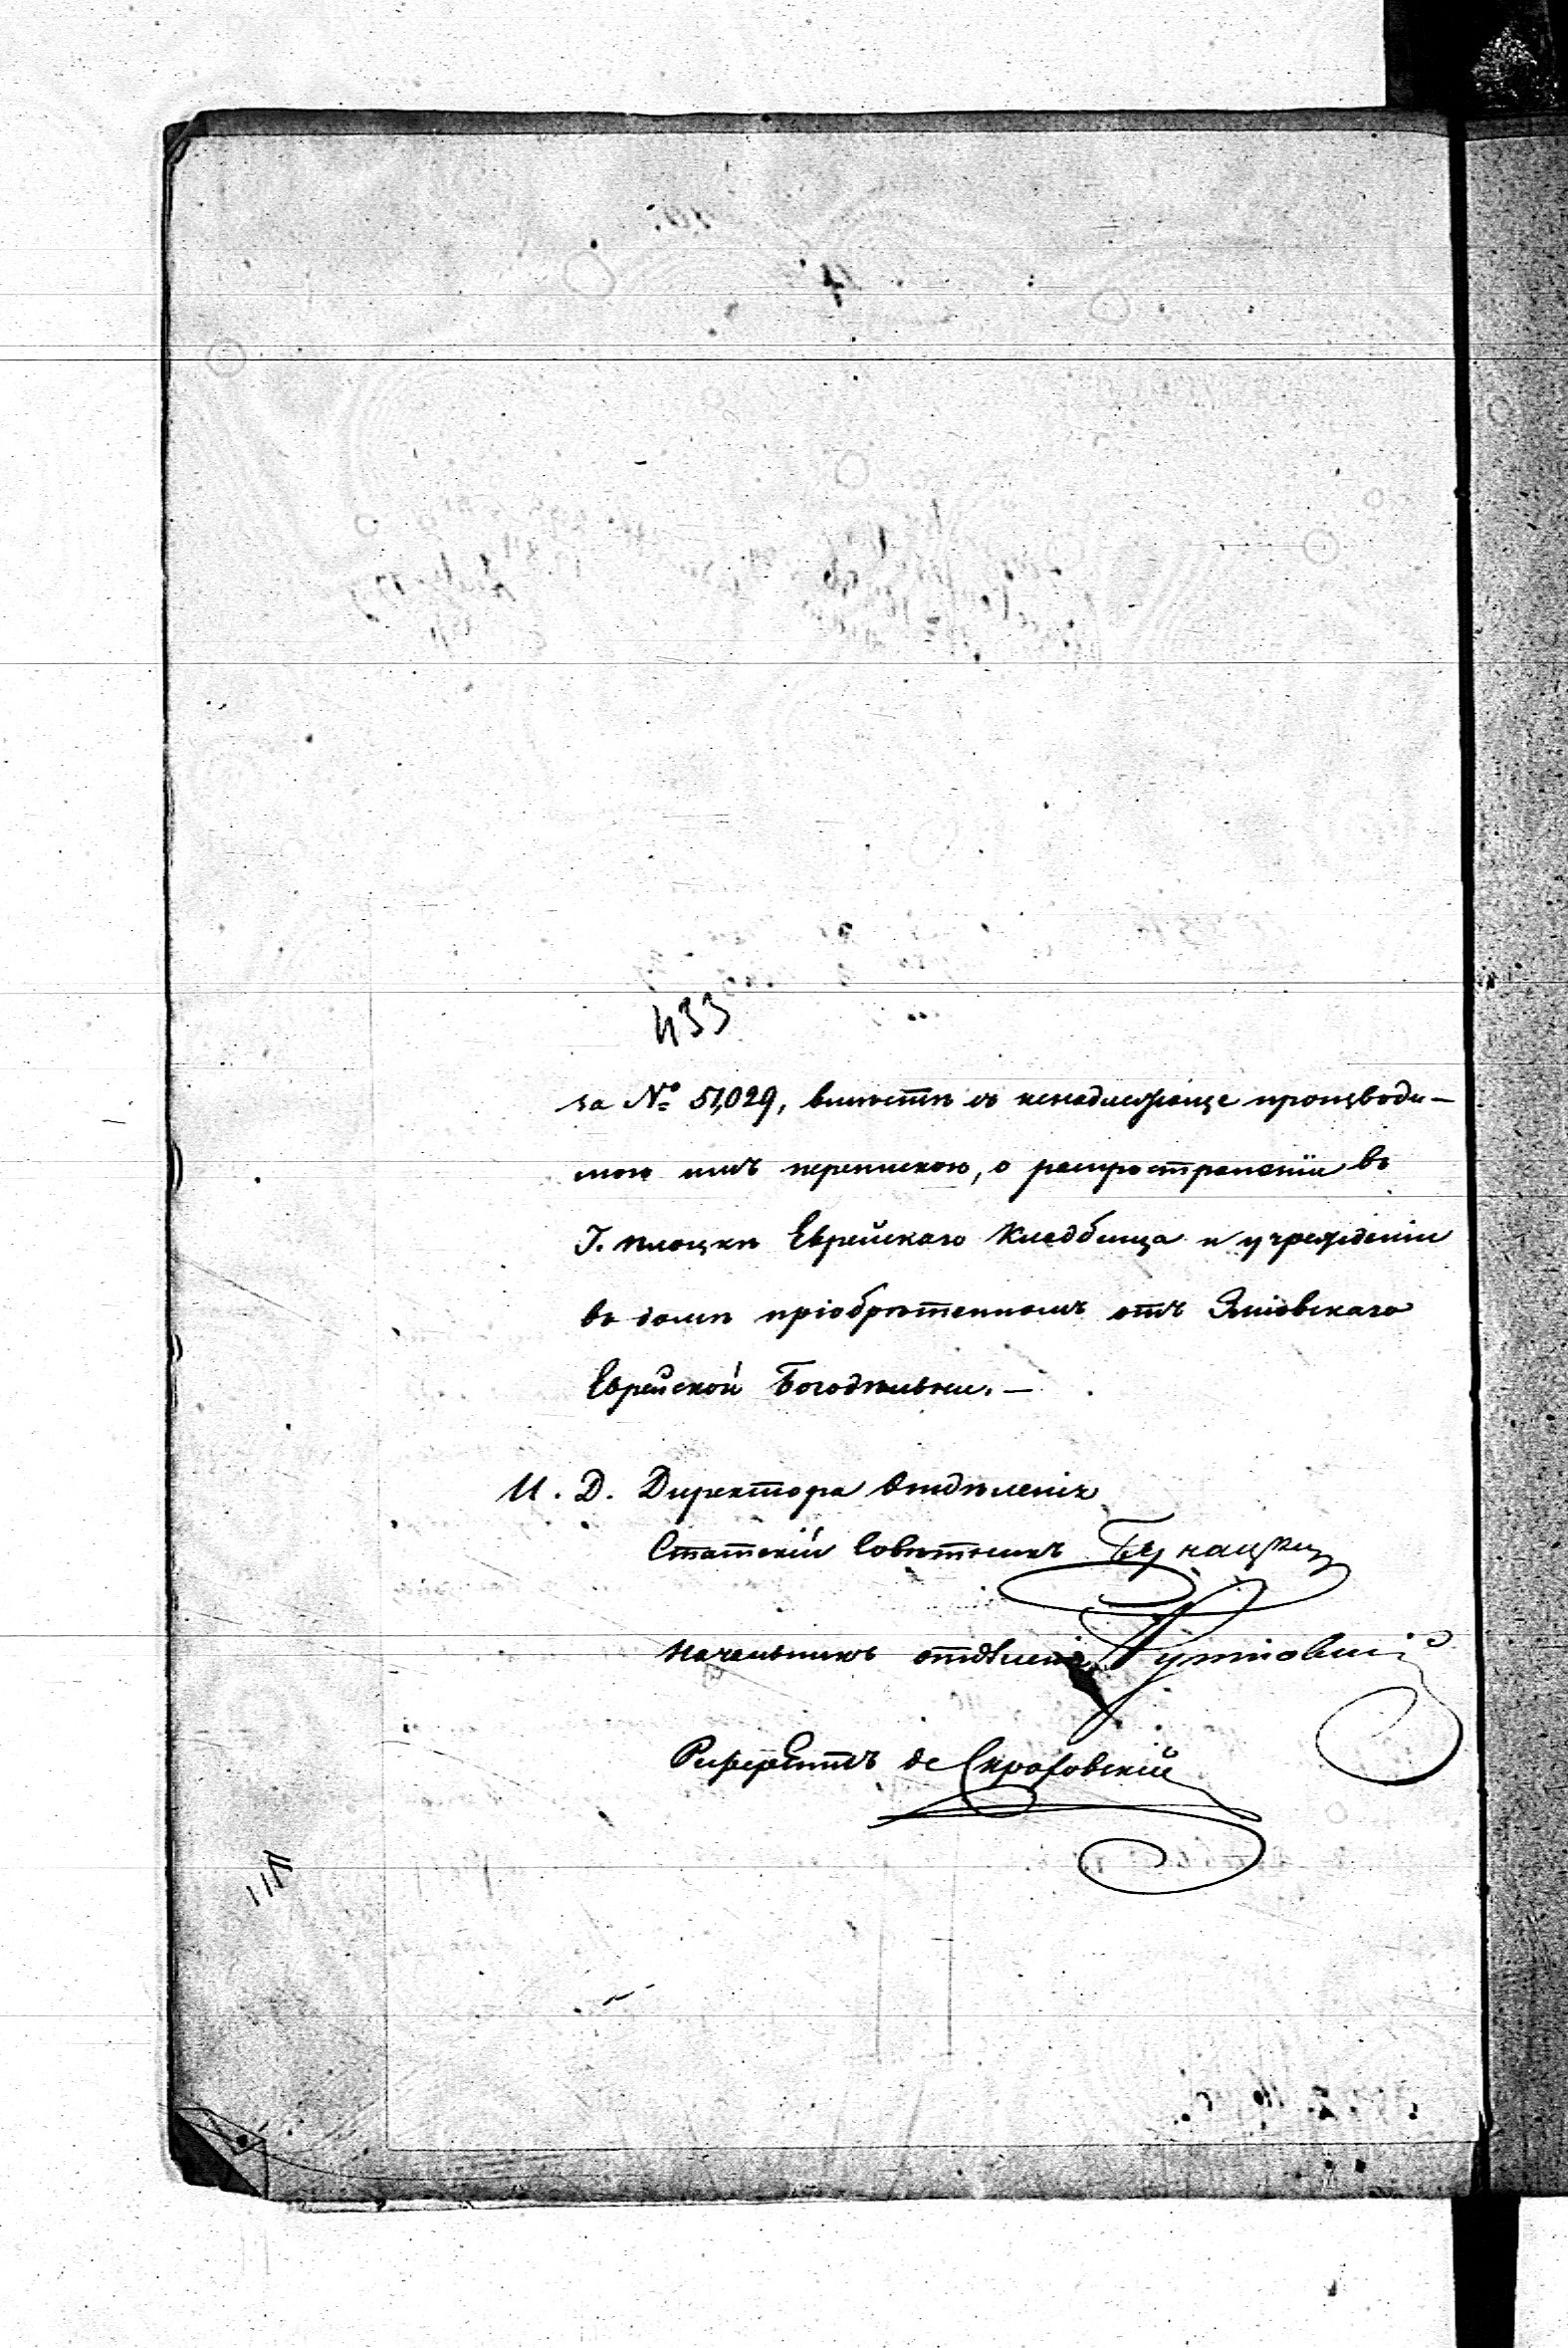 433
за № 51,029, вместѣ съ ненадлежаще производи-
мою имъ перепискою, о распространеніи въ
Г. Плоцкѣ Еврейскаго Кладбища и учрежденіи
въ домѣ пріобрѣтенномъ отъ
Еврейской Богодѣльни.—
И. Д. Директора Отдѣленія
Статскій Совѣтникъ
Начальникъ отдѣленія
Референтъ де